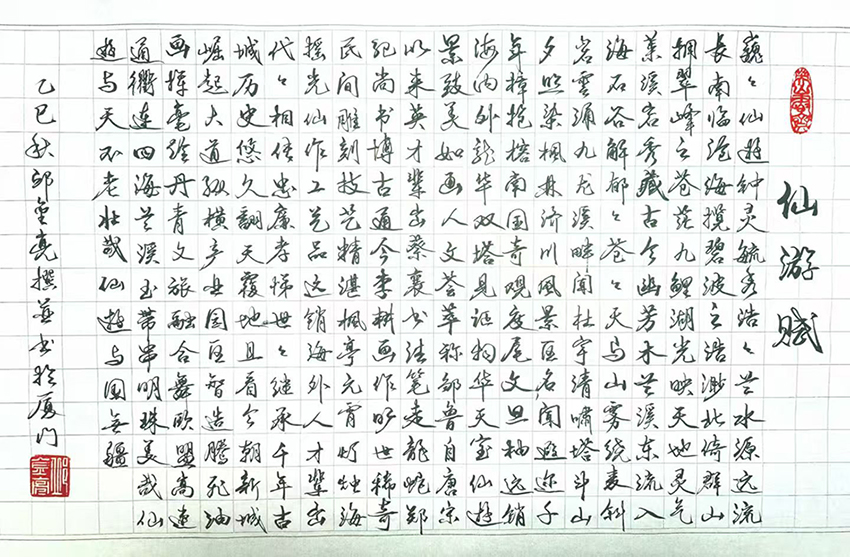 仙游赋
巍々仙遊钟灵毓秀浩々兰水源远流
长南临沧海揽碧波之浩渺北倚群山
拥翠峰之苍茫九鲤湖光映天地灵气
菜溪岩秀藏古今幽芳木兰溪东流入
海石谷解郁々苍々天马山雾绕麦斜
岩雲涌九龙溪畔闻杜宇清啸塔斗山
夕照染枫林济川风景区名闻遐迩子
年樟抱榕南国奇观度尾文旦柚远销
海内外龙华双塔见证物华天宝仙遊
景致美如画人文荟萃称邹鲁自唐宗
以来英才辈出蔡襄书法笔走龍蛇郑
纪尚书博古通今李耕画作旷世稀奇
民间雕刻技艺精湛枫亭元宵灯烛海
摇光仙作工艺品远销海外人才辈出
代々相传忠廉孝悌世々继承千年古
城历史悠久翻天覆地且看今朝新城
崛起大道纵横产业园区智造腾飞油
画挥毫绘丹青文旅融合舞欧盟高速
通衢连四海兰溪玉带串明珠美哉仙
遊与天不老壮哉仙遊与国无疆
乙巳秋邱金亮撰并书於厦门